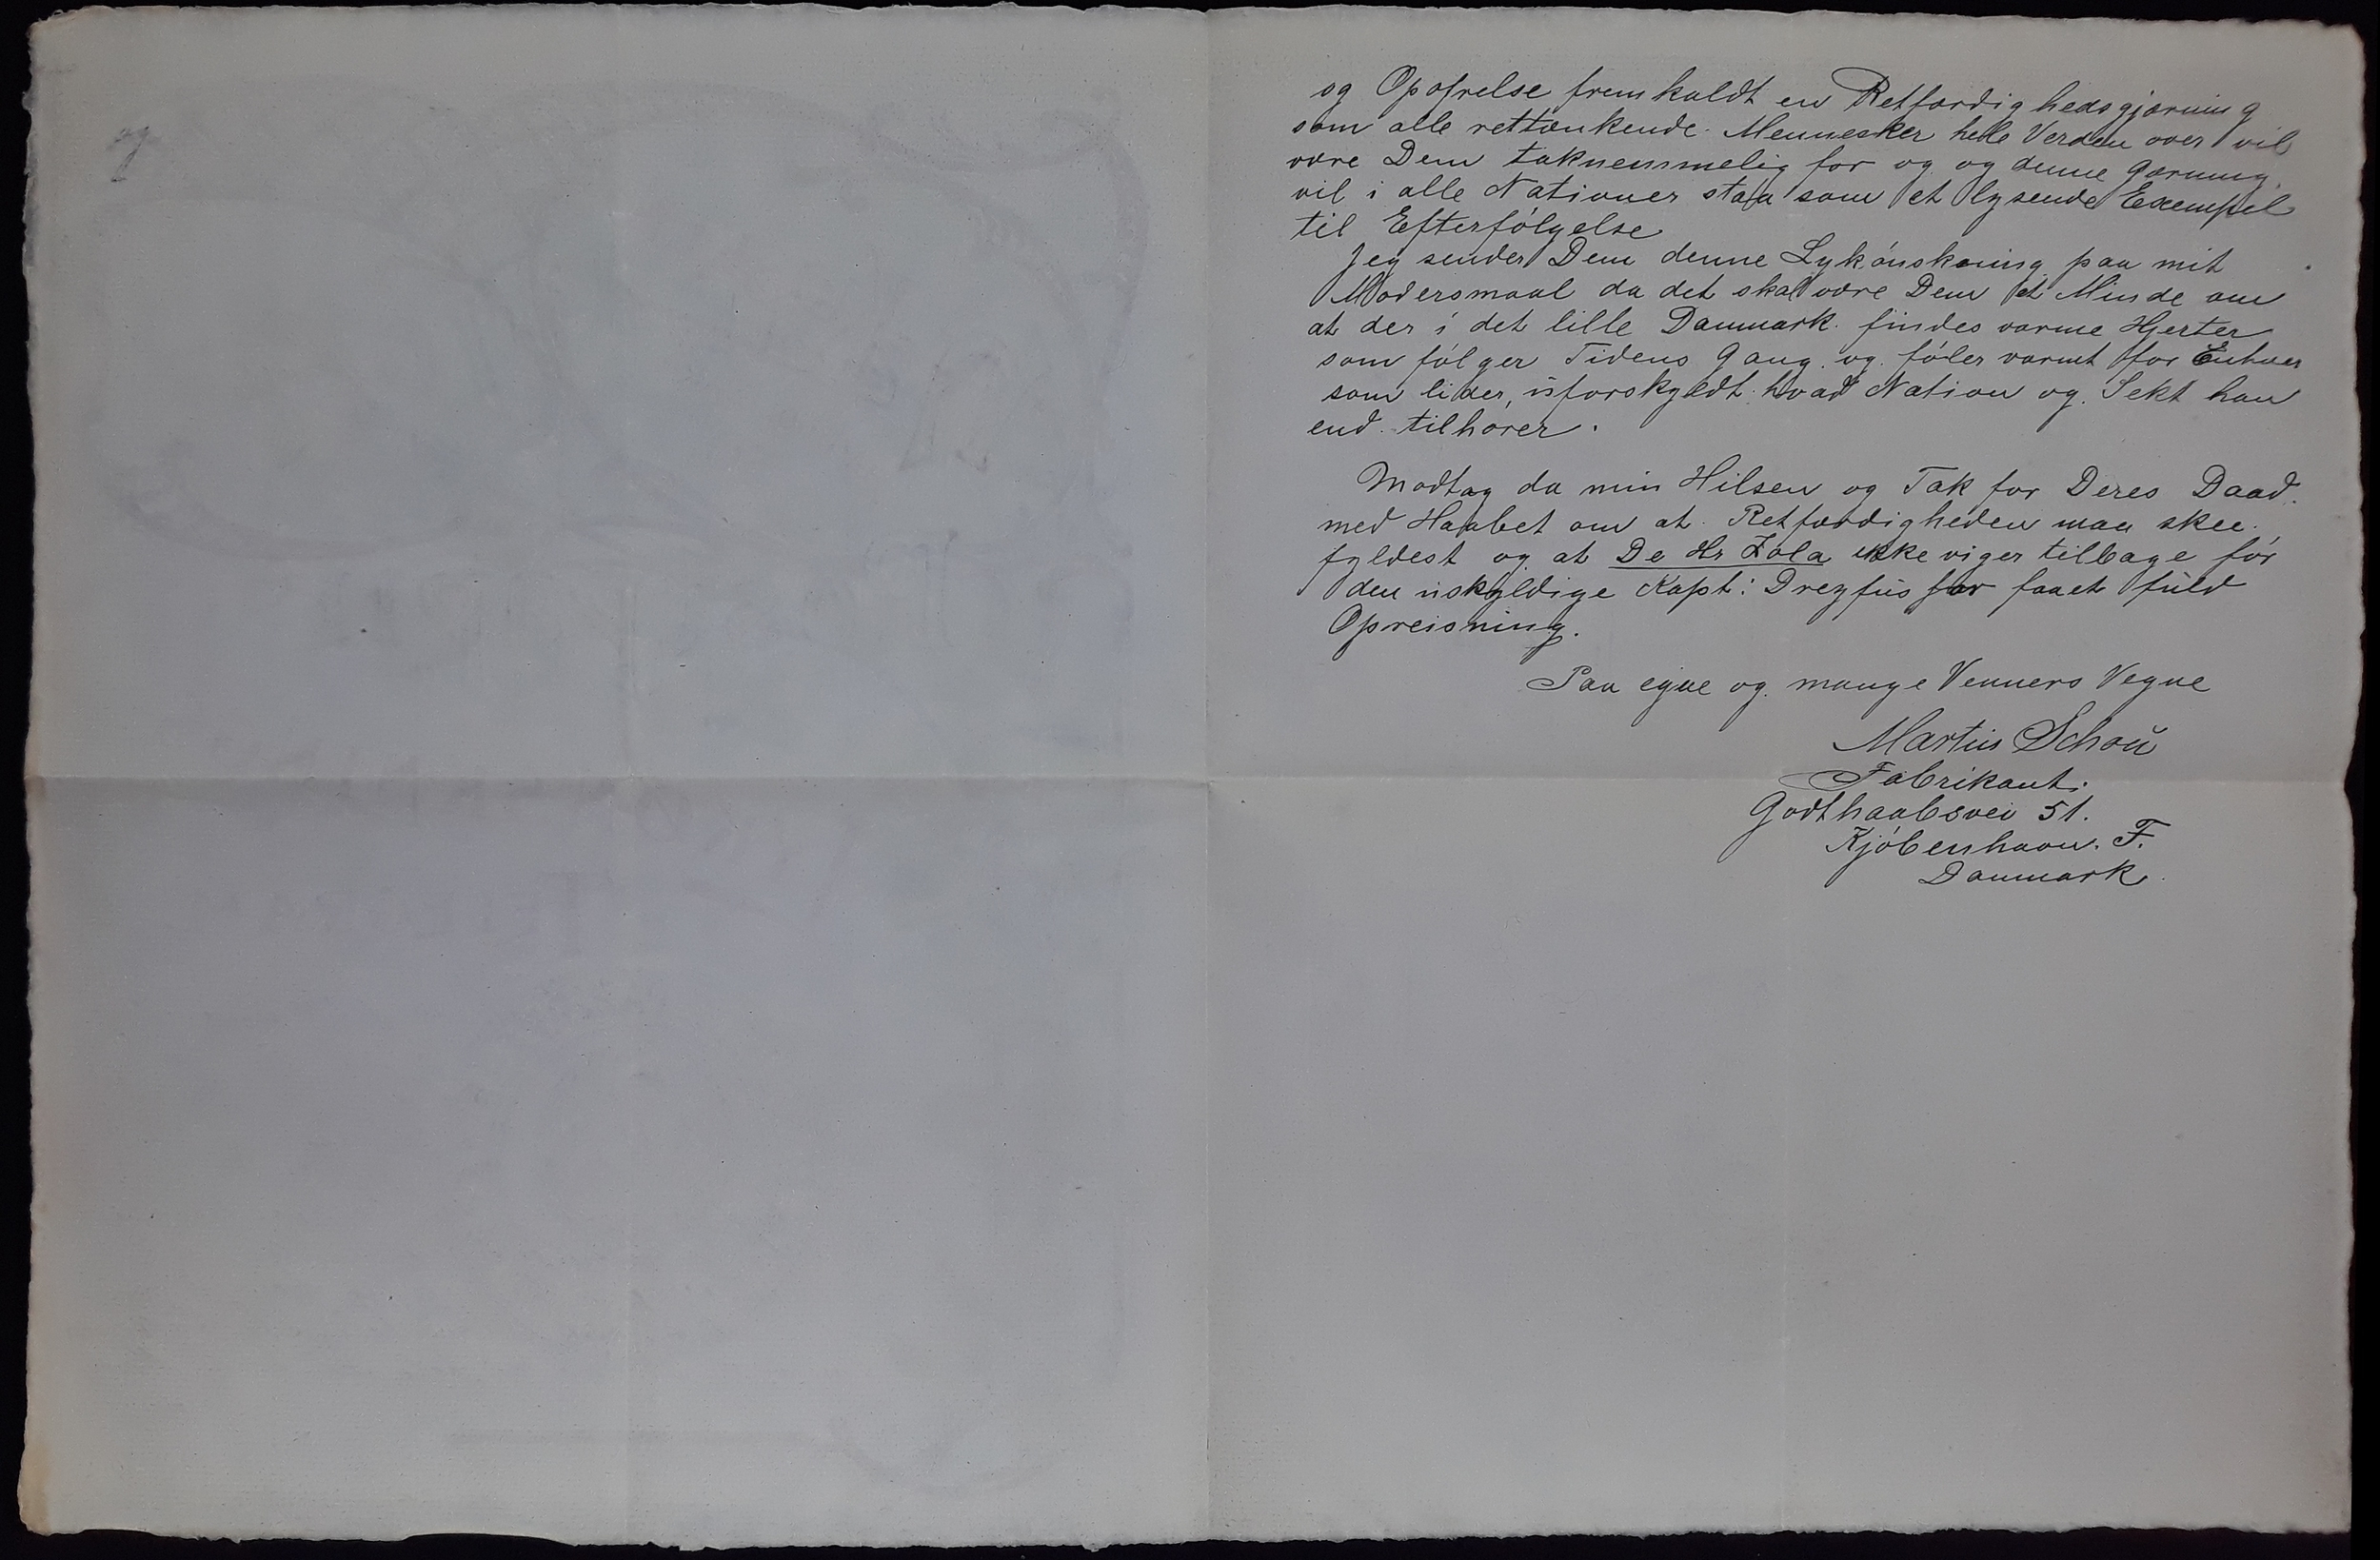 og Opofrelse fremkaldt en Retfærdighedsgjærning
som alle rettænkende Mennesker hele Verden over vil
være Dem taknemmelig for og og denne Gærning
vil i alle Nationer staa som et lysende Exempel
til Efterfølgelse
Jeg sender Dem denne Lykønskning paa mit
Modersmaal da det skal være Dem et Minde om
at der i det lille Danmark findes varme Hjerter
som følger Tidens Gang og føler varmt for Enhver
som lider, uforskyldt hvad Nation og Sekt han
end tilhører.
Modtag da min Hilsen og Tak for Deres Daad
med Haabet om at Retfærdigheden maa skee
fyldest og at De Hr Zola ikke viger tilbage før
den uskyldige Kapt: Dreyfus har faaet fuld
Opreisning.
Paa egne og mange Venners Vegne
Martin Schou
Fabrikant.
Godthaabsvei 51.
Kjøbenhavn. F.
Danmark.